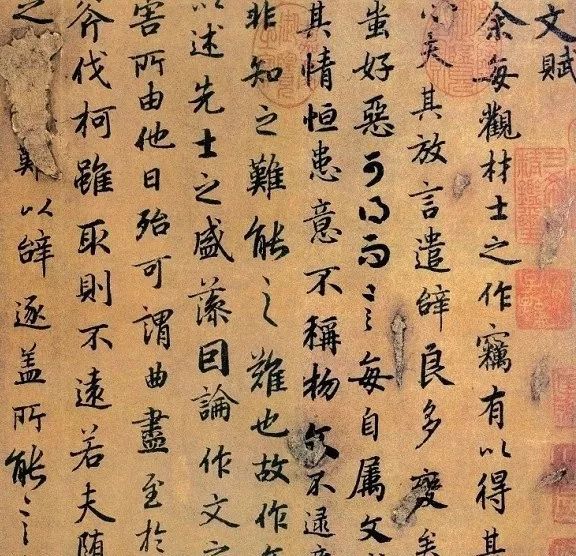 文賦
余每觀材士之作竊有以得其
心矣其放言遣辭良多變矣
蚩好惡可得而言每自属文
其情恒患意不稱物文不逮意
非知之難能之難也故作文
以述先士之盛藻因論作文之
害所由他日殆可謂曲盡至於
斧伐柯雖取則不遠若夫随
之難以辭逐盖所能言